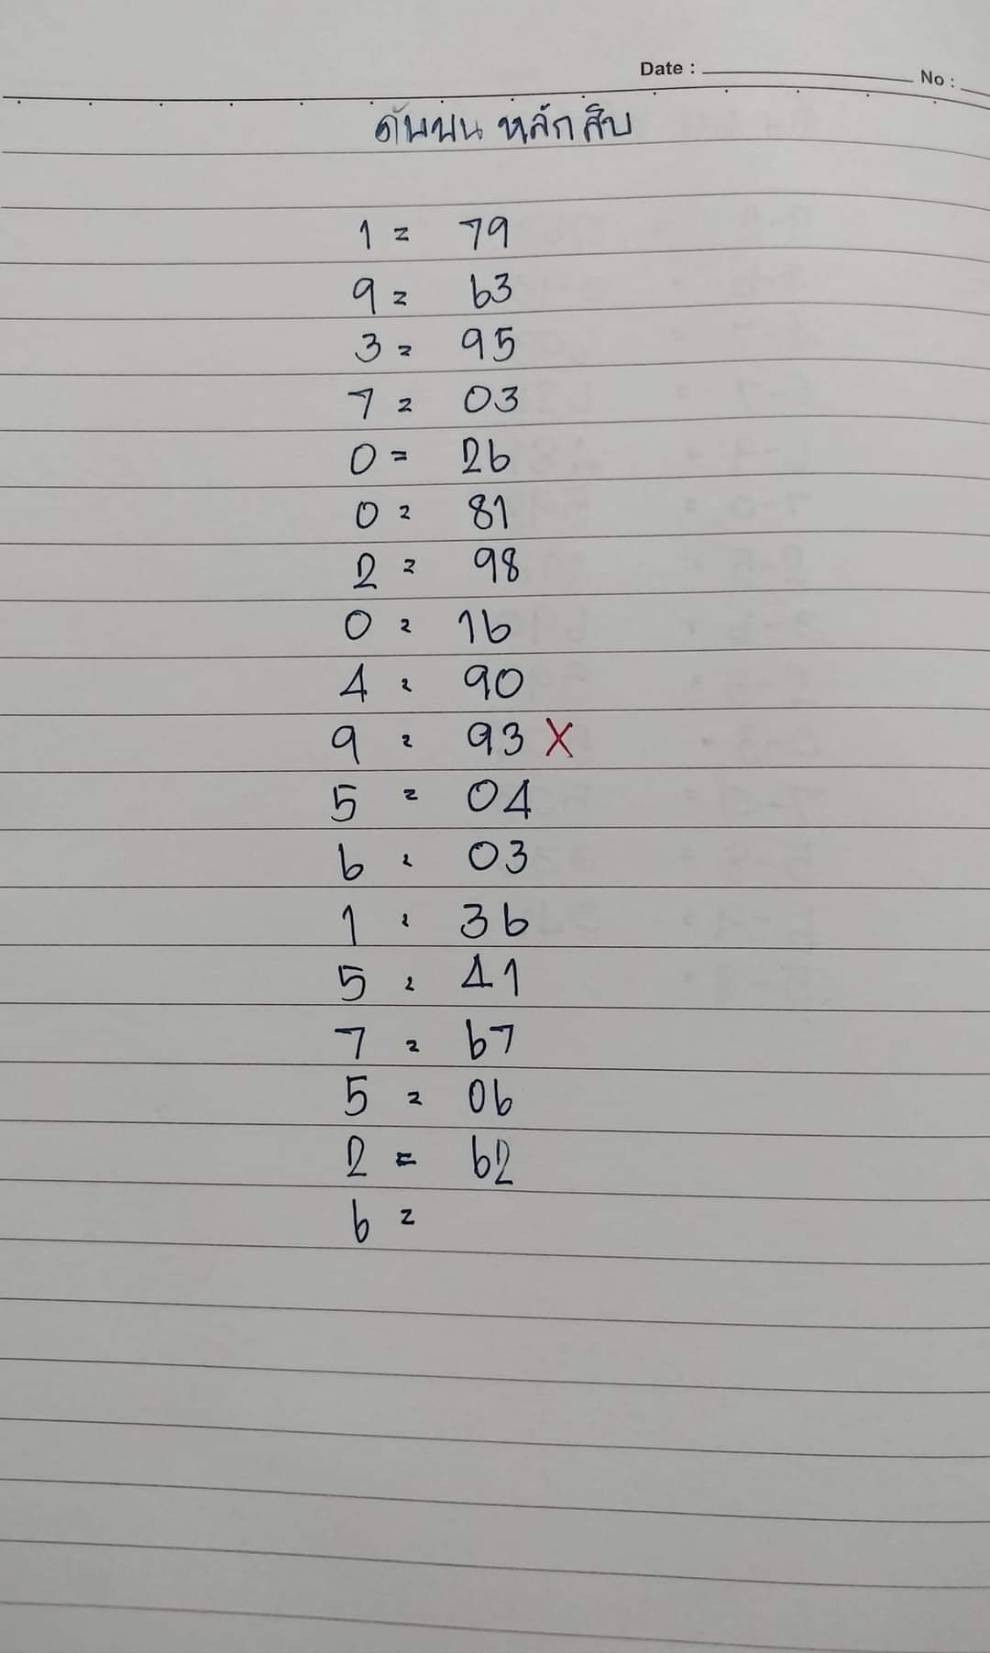 Date :
No :
ดับบน หลักสิบ
1 = 79
9 = 63
3 = 95
7 = 03
0 = 26
0 = 81
2 = 98
0 = 16
4 = 90
9 = 93 X
5 = 04
6 = 03
1 = 36
5 = 41
7 = 67
5 = 06
2 = 62
6 =